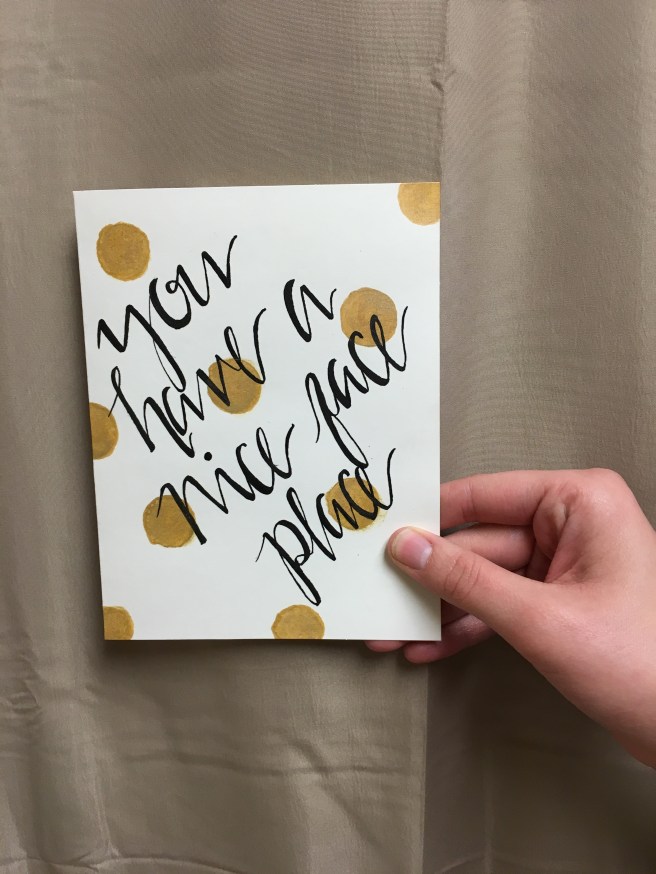 you
have a
nice face
place